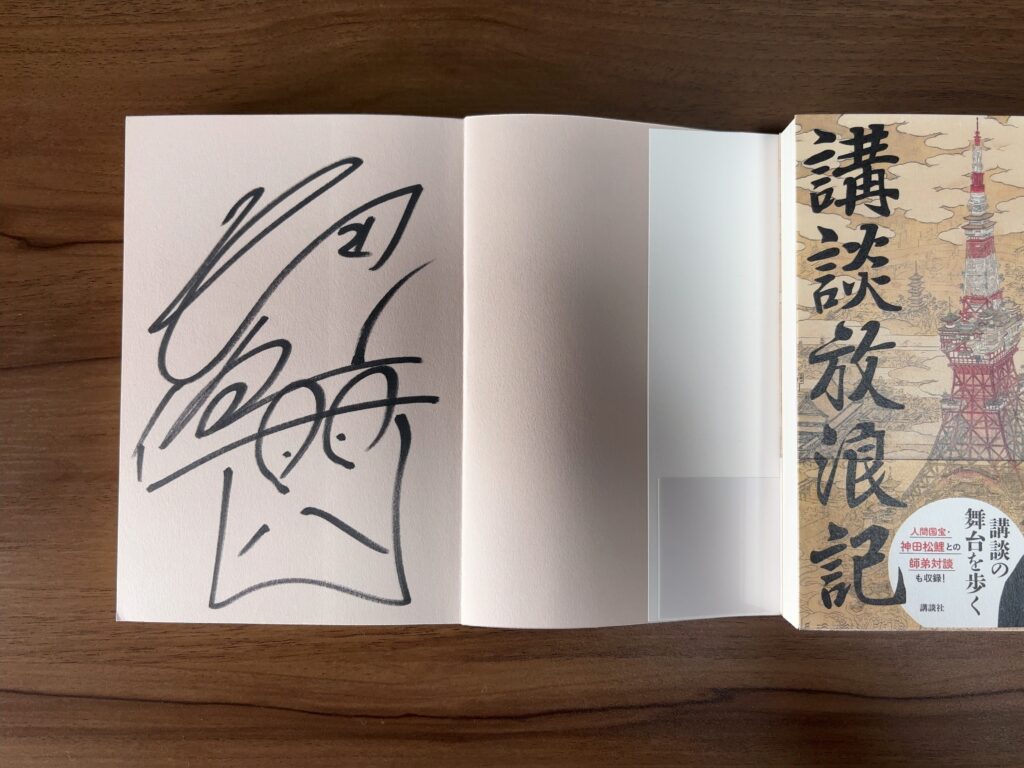 講談放浪記
講談の
舞台を歩く
人間国宝・
神田松鯉との
師弟対談
も収録!
講談社